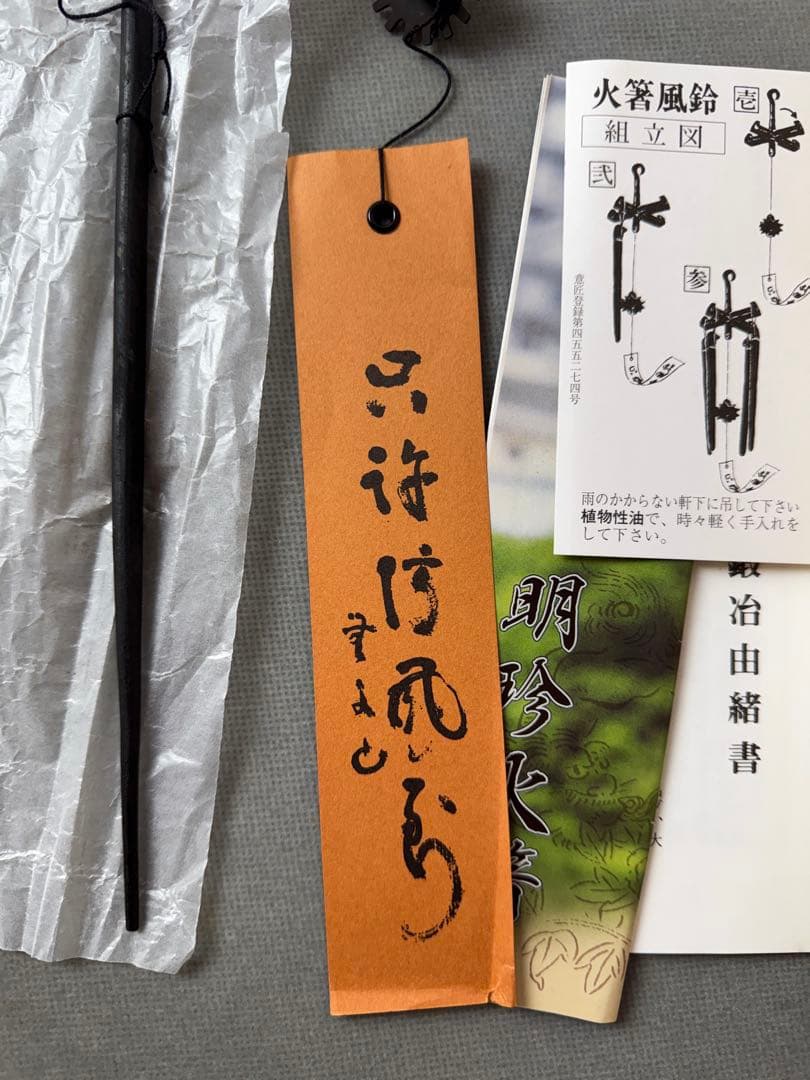 火箸風鈴
組立図
壱
弐
参
意匠登録第四五五二七四号
雨のかからない軒下に吊して下さい
植物性油で、時々軽く手入れを
して下さい。
只許清風到
明珍火箸
鍛冶由緒書